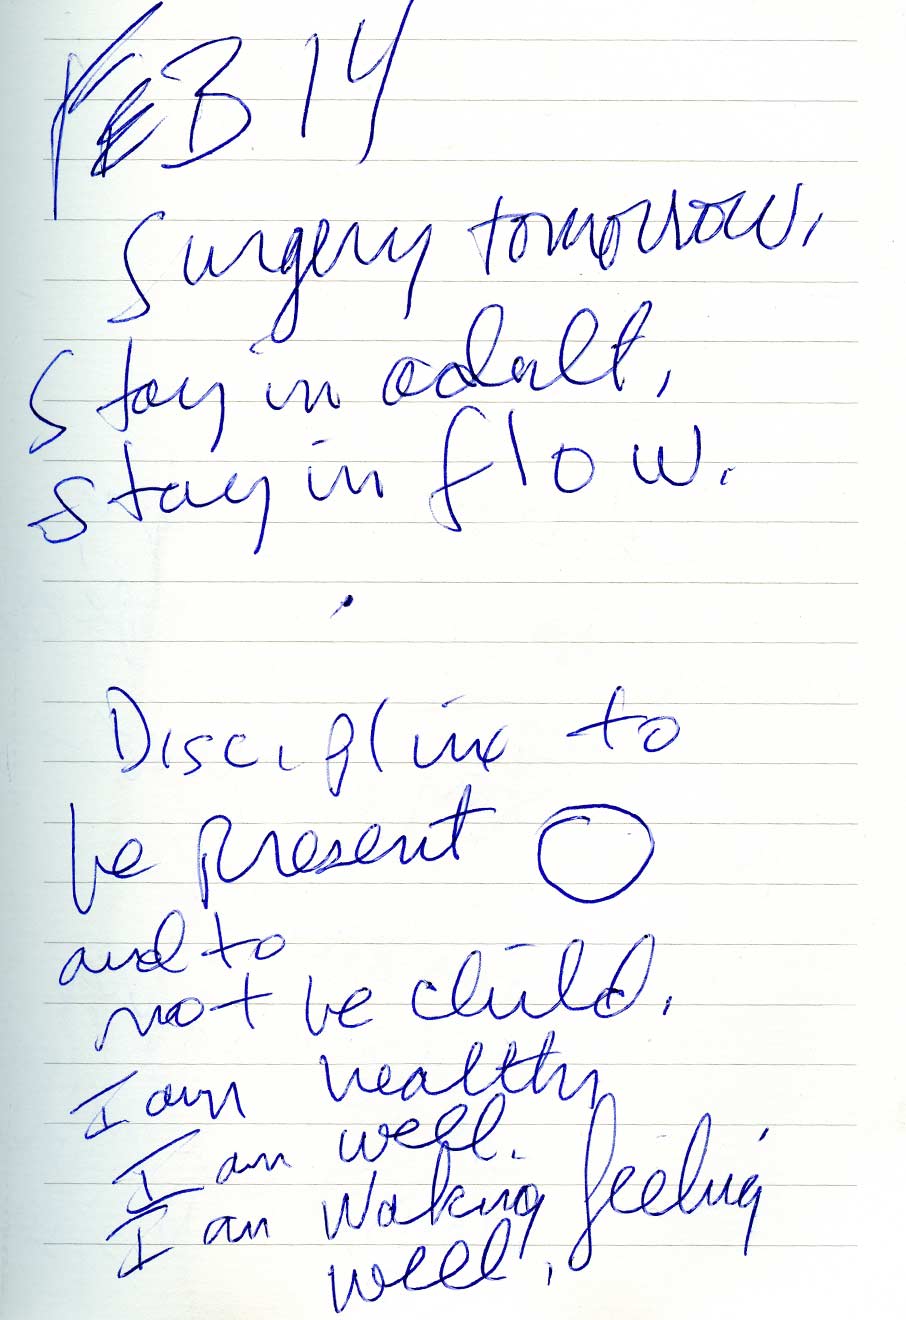 FEB 14
Surgery tomorrow.
Stay in adult,
stay in flow.
Discipline to
be present
and to
not be child.
I am healthy
I am well.
I am waking feeling
well.